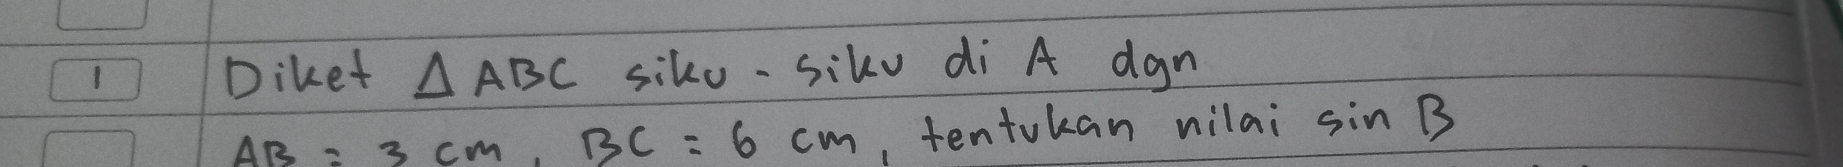 1 Diket Δ ABC siku-siku di A dgn
AB = 3 cm, BC = 6 cm, tentukan nilai sin B